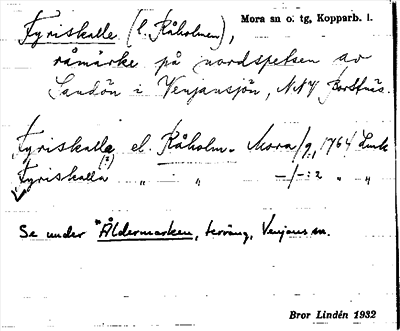 Fyriskalle (l. Råholmen), Mora sn o. tg, Kopparb. l.
råmärke på nordspetsen av
Sandön i Venjansjön, NNV Bortnäs.
Fyriskalla el. Råholm. Mora/9, 1764 Link
Fyriskalla (?) " " -/-:2 " "
Se under "Åldermarken, terräng, Venjans sn.
Bror Lindén 1932